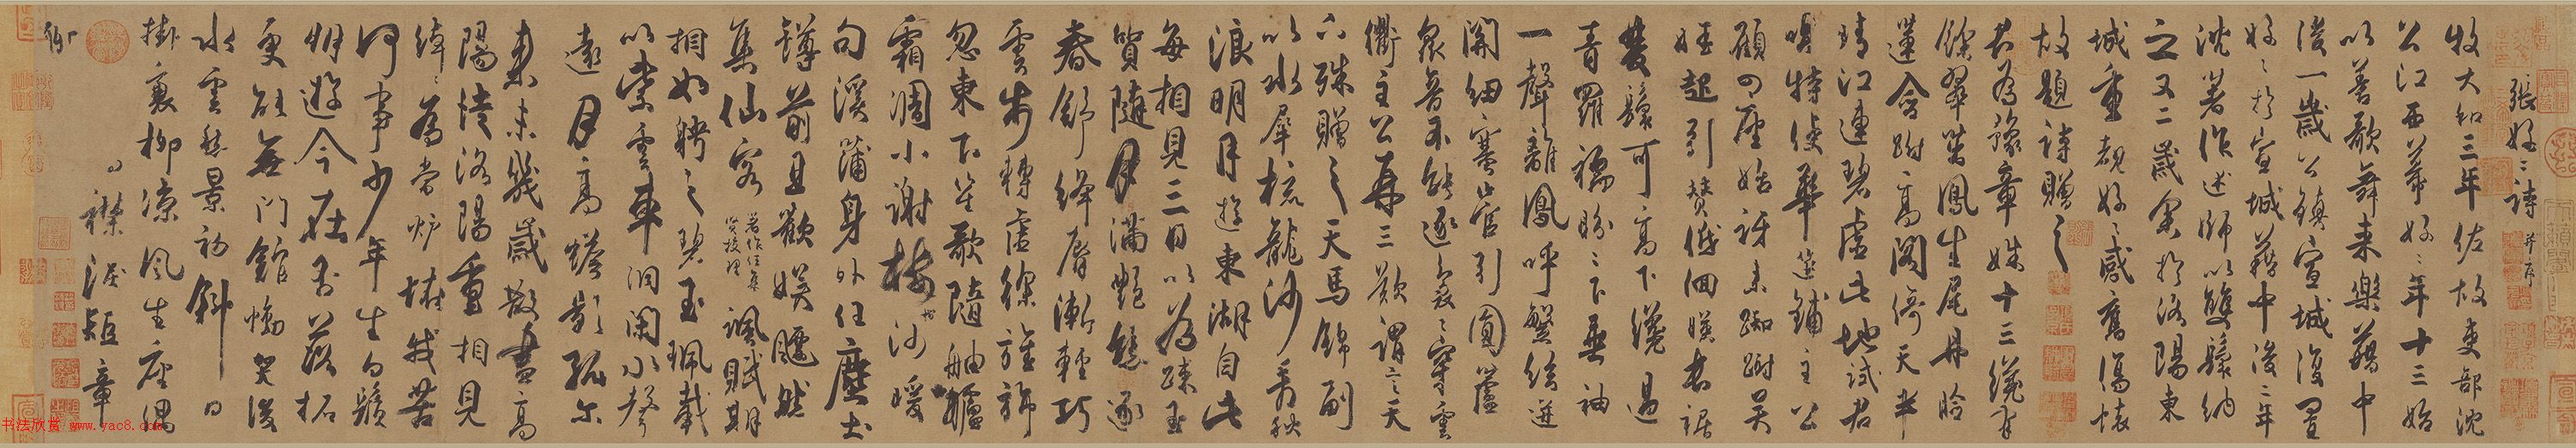 張好好詩 并序
牧大和三年佐故吏部沈
公江西幕好好年十三始
以善歌舞来樂籍中
後一歲公鎮宣城復置
好好於宣城籍中後二年
沈著作述師以雙鬟納
之又二歲余於洛陽東
城重覩好好感舊傷懷
故題詩贈之
君為豫章姝十三纔有
餘翠茁鳳生尾丹臉
蓮含跗高閣倚天半
晴江連碧虛此地試君
唱特使華筵鋪主公
顧四座始訝来踟蹰吳
娃起引贊低佪暎長裾
雙鬟可高下纔過
青羅襦盼盼下垂袖
一聲離鳳呼繁絃迸
關紐塞管引圓蘆
衆音不能逐裊裊穿雲
衢主公再三歎謂言天
下殊贈之天馬錦副
以水犀梳龍沙看秋
浪明月遊東湖自此
每相見三日以為踈玉
質隨月滿艷態逐
春舒絳脣漸輕巧
雲步轉虛徐旌旆
忽東下笙歌隨舳艫
霜凋小謝樓樹沙暖
句溪蒲身外任塵土
罇前且歡娛飄然
集仙客著作任集賢校理諷賦期
相如聘之碧玉珮載
以紫雲車洞閉水聲
遠月高蟾影孤尓
来未幾歲散盡高
陽徒洛陽重相見
綽綽為當爐怪我苦
何事少年生白鬚
朋遊今在否落拓
更能無門館慟哭後
水雲愁景初斜日
掛衰柳涼風生座隅
灑襟淚短章
聊
书法欣赏 www.yac8.com